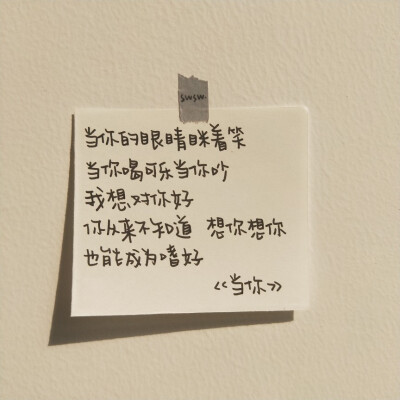 swsw.
当你的眼睛眯着笑
当你喝可乐当你吵
我想对你好
你从来不知道 想你想你
也能成为嗜好
《当你》